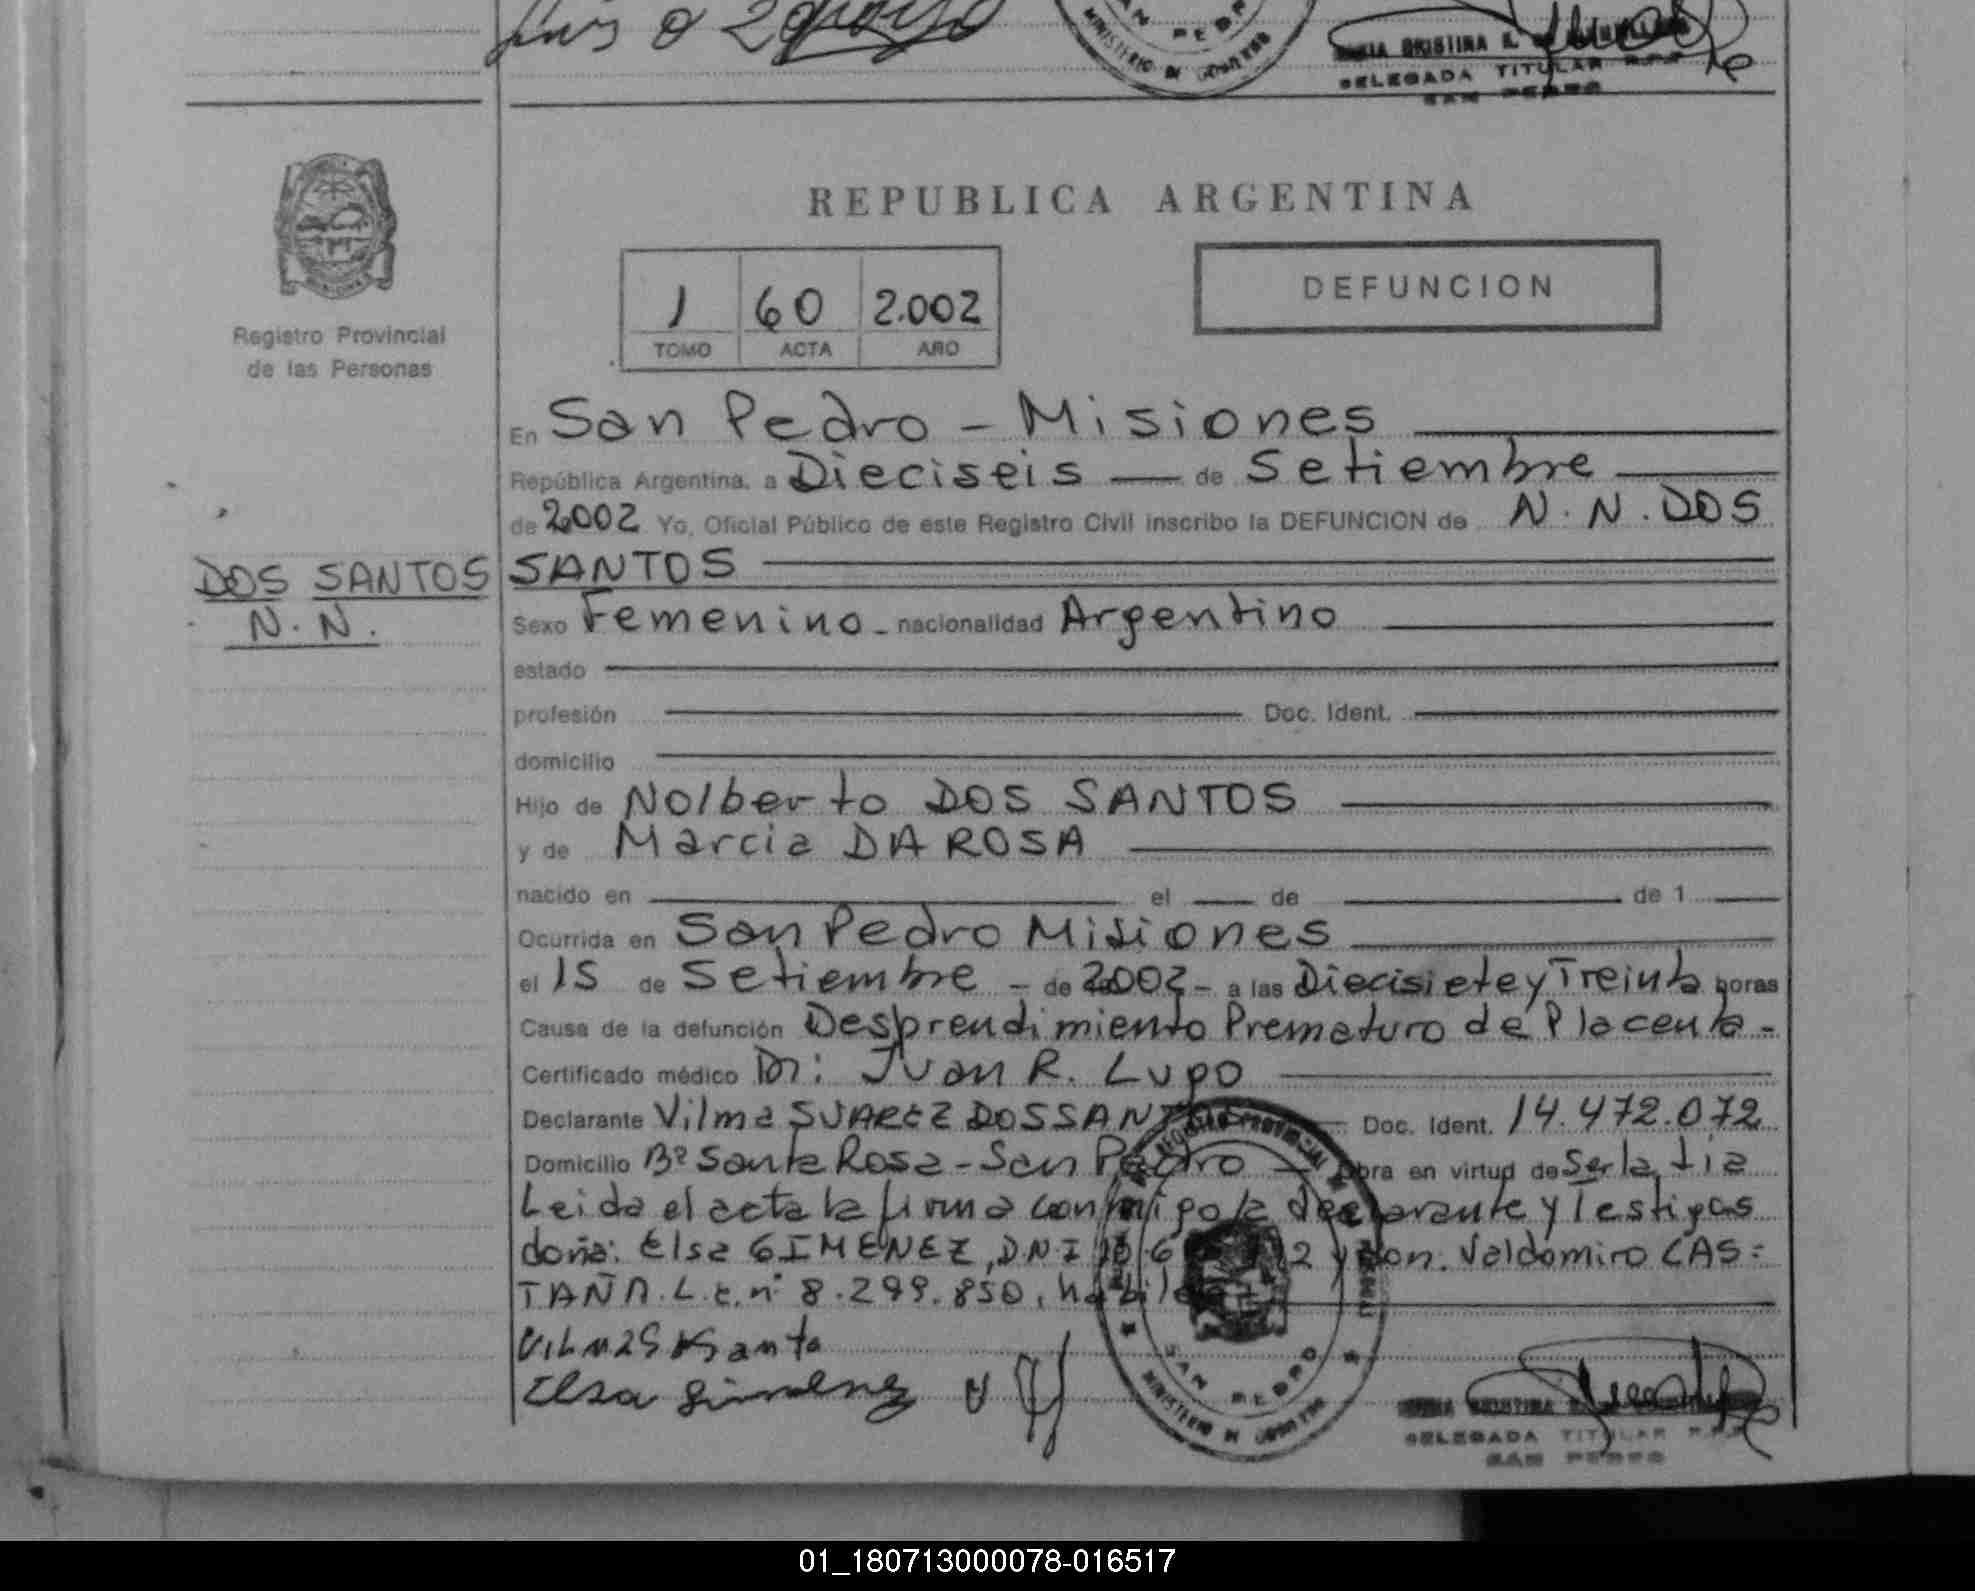 SAN PEDRO
MINISTERIO DE GOBIERNO
CRISTINA
DELEGADA TITULAR R.P.P.
SAN PEDRO
REPUBLICA ARGENTINA
1 60 2.002
TOMO ACTA AÑO
DEFUNCION
Registro Provincial
de las Personas
En San Pedro - Misiones
República Argentina, a Dieciseis de Setiembre
de 2002 Yo, Oficial Público de este Registro Civil inscribo la DEFUNCION de N. N. DOS
SANTOS
DOS SANTOS
N. N.
Sexo Femenino - nacionalidad Argentino
estado
profesión Doc. Ident.
domicilio
Hijo de Nolberto DOS SANTOS
y de Marcia DA ROSA
nacido en el de de 1
Ocurrida en San Pedro Misiones
el 15 de Setiembre - de 2002 - a las Diecisiete y Treinta horas
Causa de la defunción Desprendimiento Prematuro de Placenta -
Certificado médico Dr: Juan R. Lugo
Declarante Vilma SUAREZ DOS SANTOS Doc. Ident. 14.472.072
Domicilio Bº Santa Rosa - San Pedro - Obra en virtud de Ser la tia
Leida el acta la firma conmigo la declarante y Testigos
doña: Elsa GIMENEZ, D.N.I y don. Valdomiro CAS=
TAÑA. L.E. nº 8.299.850, habiles
Elsa Gimenez
SAN PEDRO
MINISTERIO DE GOBIERNO
CRISTINA
DELEGADA TITULAR R.P.P.
SAN PEDRO
01_180713000078-016517